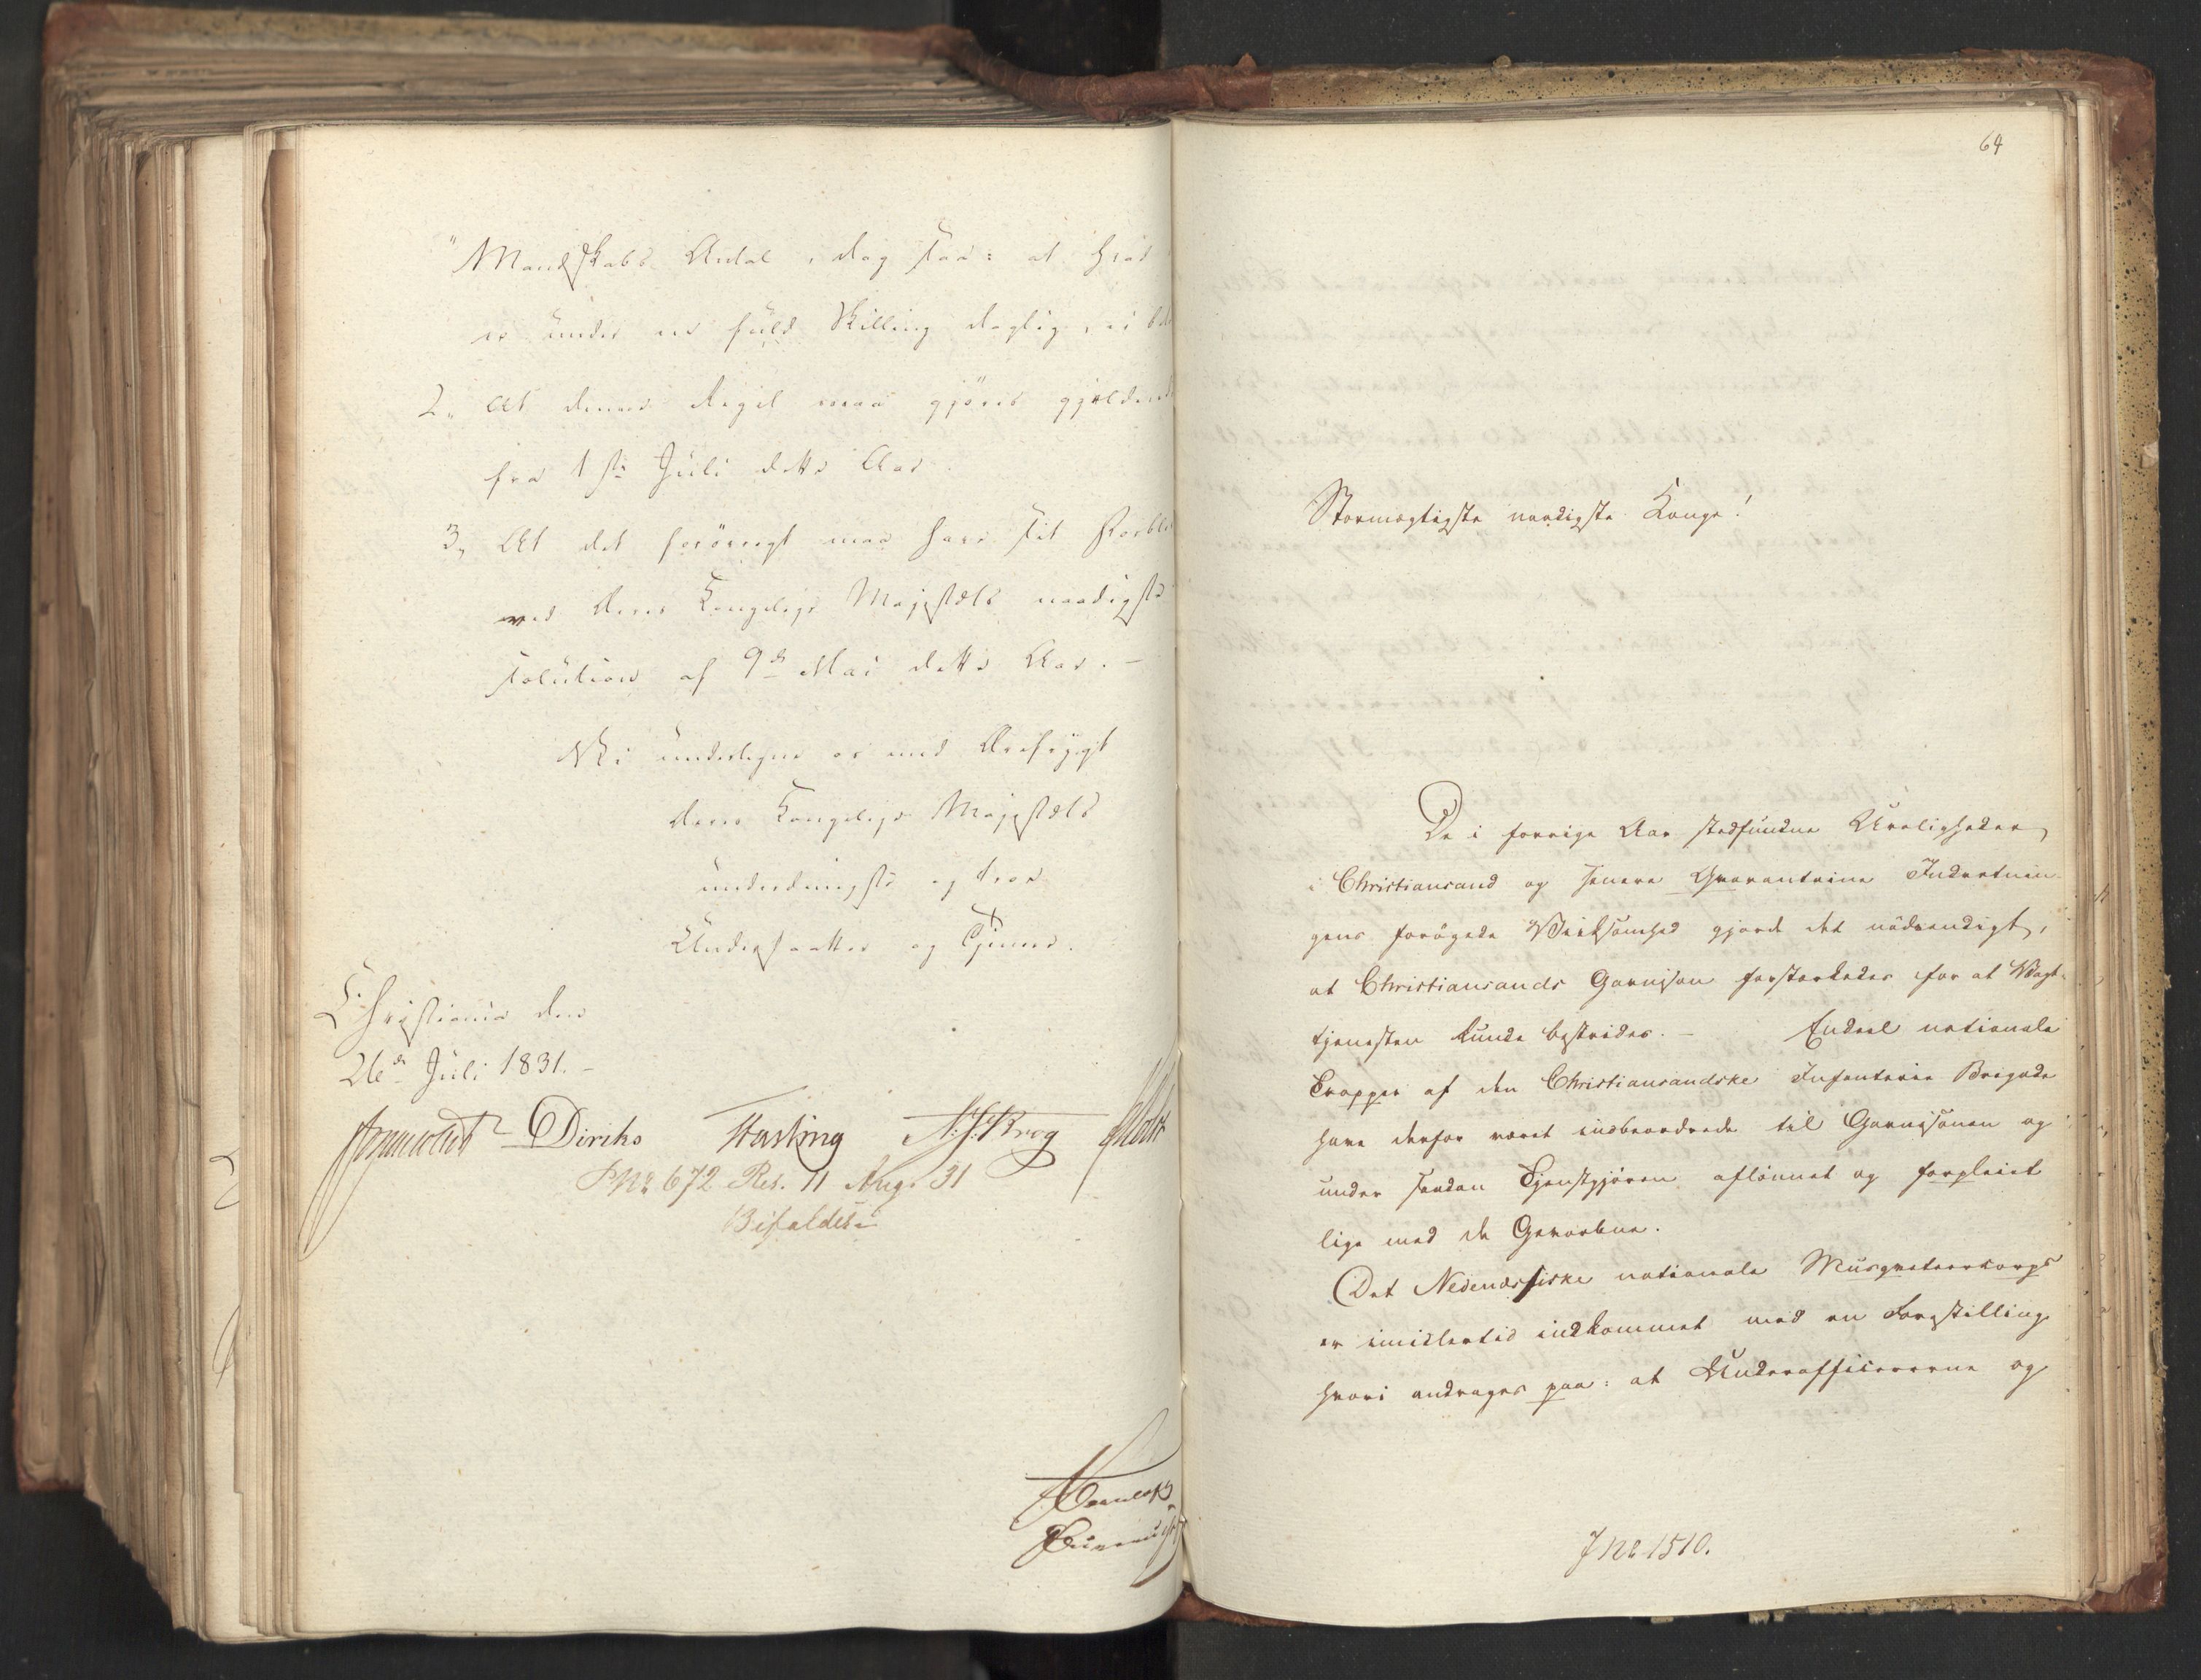 "Mandskabs Antal, dog saa: at hvad
er under en fuld Skilling daglig, ei
2, At denne Regel maa gjøres gjeldende
fra 1ste Juli dette Aar.
3, At det forøvrigt maa have sit Forbli
ved Deres Kongelige Majestæts naadigste
solution af 9de Mai dette Aar. –
Vi undertegne os med Ærefrygt
Deres Kongelige Majestæts
underdanigste og troe
Undersaatter og Tjenere.
Christiania den
26de Juli 1831. –
Diriks Fasting N. J. Krog Holst
PNr 672 Res. 11 Aug. 31
Bifaldes.
64
Stormægtigste naadigste Konge!
De i forrige Aar stedfundne Uroligheder
i Christiansand og senere Qvarantaine Indretnin-
gens forøgede Virksomhed gjorde det nødvendigt,
at Christiansands Garnison forstærkedes for at Vagt-
tjenesten kunde bestrides. – Endeel nationale
Tropper af den Christiansandske Infanterie Brigade
have derfor været indbeordrede til Garnisonen og
under saadan Tjenstgjøren aflønnet og forpleiet
lige med de Gevorbne.
Det Nedenæssiske nationale Musqueteercorps
er imidlertid indkommet med en Forestilling
hvori andrages paa: at Underofficererne og
JNr 1510.